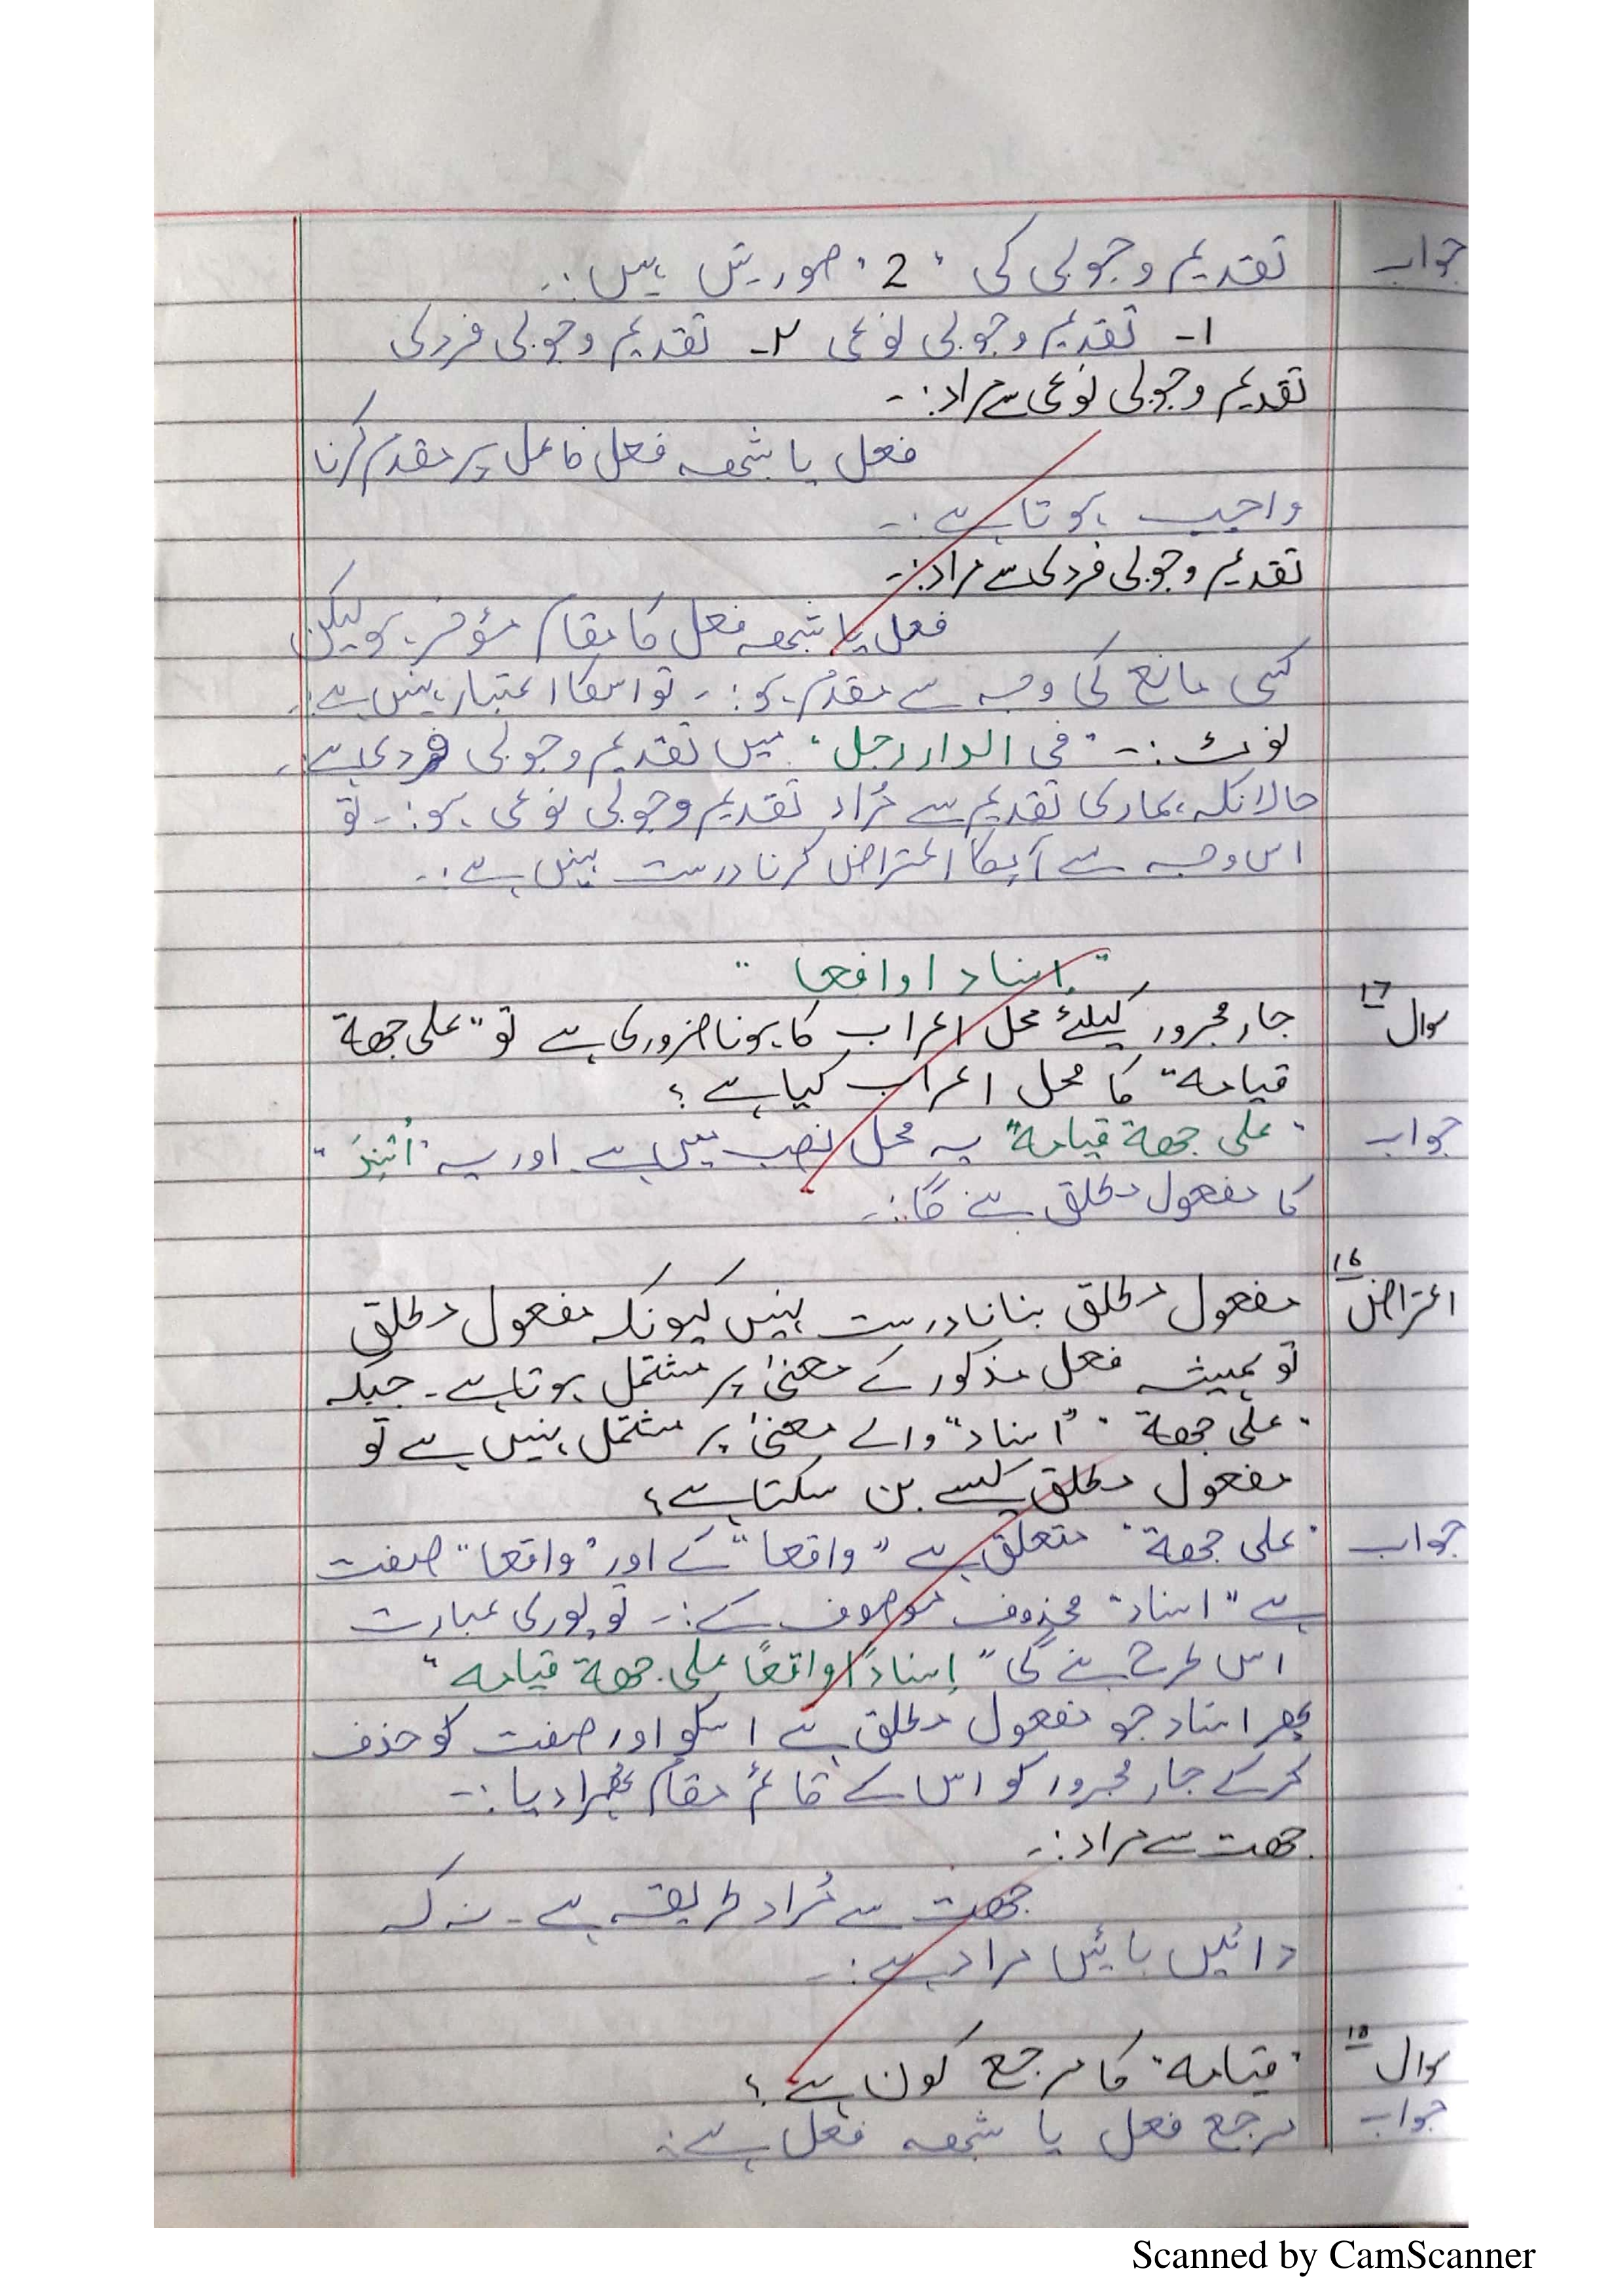 جواب تقدیم وجوبی کی "2" صورتیں ہیں:۔
۱۔ تقدیم وجوبی نوعی ۲۔ تقدیم وجوبی فردی
تقدیم وجوبی نوعی سے مراد:۔
فعل یا شبہ فعل فاعل پر مقدم کرنا
واجب ہوتا ہے:۔
تقدیم وجوبی فردی سے مراد:۔
فعل یا شبہ فعل کا مقام مؤخر ہو لیکن
کسی مانع کی وجہ سے مقدم ہو:۔ تو اسکا اعتبار نہیں ہے:۔
نوٹ:۔ "فی الدار رجل" میں تقدیم وجوبی فردی ہے۔
حالانکہ ہماری تقدیم سے مُراد تقدیم وجوبی نوعی ہو:۔ تو
اس وجہ سے آپکا اعتراض کرنا درست نہیں ہے:۔
"اسنادا واقعا"
سوال ۱۷ جار مجرور کیلئے محل اعراب کا ہونا ضروری ہے تو "علی جھة
قیامہ" کا محل اعراب کیا ہے؟
جواب "علی جھة قیامہ" یہ محل نصب میں ہے اور یہ "اُسْنِدَ"
کا مفعول مطلق بنے گا:۔
اعتراض ۱۶ مفعول مطلق بنانا درست نہیں کیونکہ مفعول مطلق
تو ہمیشہ فعل مذکور کے معنیٰ پر مشتمل ہوتا ہے۔ جبکہ
"علی جھة" "اسناد" والے معنیٰ پر مشتمل نہیں ہے تو
مفعول مطلق کیسے بن سکتا ہے؟
جواب "علی جھة" متعلق ہے "واقعا" کے اور "واقعا" صفت
ہے "اسناد" محذوف موصوف کے:۔ تو پوری عبارت
اس طرح بنے گی "اِسنادًا واقعًا علی جھة قیامہ"
پھر اسناد جو مفعول مطلق ہے اسکو اور صفت کو حذف
کرکے جار مجرور کو اس کے قائم مقام ٹھہرا دیا:۔
جھت سے مراد:۔
جھت سے مُراد طریقہ ہے۔ نہ کہ
دائیں بائیں مراد ہے:۔
سوال ۱۸ "قیامہ" کا مرجع کون ہے؟
جواب مرجع فعل یا شبہ فعل ہے:
Scanned by CamScanner